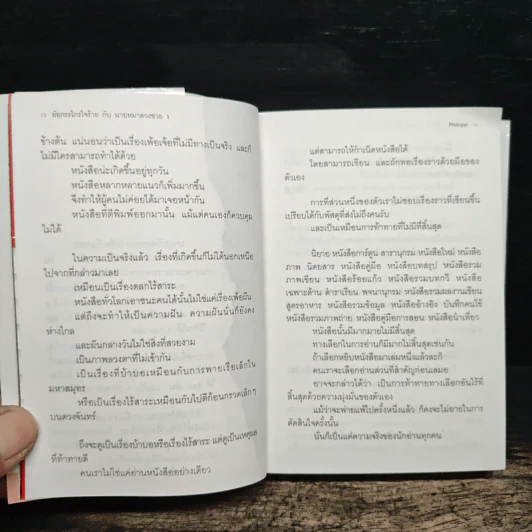 12 ยัยกรรไกรใจร้าย กับ นายหมาดวงซวย 1
ข้างต้น แน่นอนว่าเป็นเรื่องเพ้อเจ้อที่ไม่มีทางเป็นจริง และก็
ไม่มีใครสามารถทำได้ด้วย
หนังสือน่ะเกิดขึ้นอยู่ทุกวัน
หนังสือหลากหลายแนวก็เพิ่มมากขึ้น
จึงทำให้ผู้คนไม่ค่อยได้มาเจอหน้ากัน
หนังสือที่ตีพิมพ์ออกมานั้น แม้แต่คนเองก็ควบคุม
ไม่ได้
ในความเป็นจริงแล้ว เรื่องที่เกิดขึ้นก็ไม่ได้นอกเหนือ
ไปจากที่กล่าวมาเลย
เหมือนเป็นเรื่องตลกไร้สาระ
หนังสือทั่วโลกเอาชนะคนได้นั้นไม่ใช่แค่เรื่องเพ้อฝัน
แต่ถึงจะทำให้เป็นความฝัน ความฝันนั้นก็ยังคง
ห่างไกล
และฝันกลางวันไม่ใช่สิ่งที่สวยงาม
เป็นภาพลวงตาที่ไม่เข้ากัน
เป็นเรื่องที่บ้าบอเหมือนกับการพายเรือเล็กใน
มหาสมุทร
หรือเป็นเรื่องไร้สาระเหมือนกับไปตีก้อนกรวดเล็กๆ
บนดวงจันทร์
ถึงจะดูเป็นเรื่องบ้าบอหรือเรื่องไร้สาระ แต่ดูเป็นเหตุผล
ที่ท้าทายดี
คนเราไม่ใช่แค่อ่านหนังสืออย่างเดียว
Prologue 13
แต่สามารถให้กำเนิดหนังสือได้
โดยสามารถเขียน และถักทอเรื่องราวด้วยมือของ
ตัวเอง
การที่ส่วนหนึ่งของตัวเราไม่ชอบเรื่องราวที่เขียนขึ้น
เปรียบได้กับพัสดุที่ส่งไม่ถึงคนรับ
และเป็นเหมือนการท้าทายที่ไม่มีที่สิ้นสุด
นิยาย หนังสือการ์ตูน สารานุกรม หนังสือใหม่ หนังสือ
ภาพ นิตยสาร หนังสือคู่มือ หนังสือบทสรุป หนังสือรวม
ภาพเขียน หนังสือร้อยแก้ว หนังสือรวมบทกวี หนังสือ
เฉพาะด้าน ตำราเรียน พจนานุกรม หนังสือรวมผลงานเขียน
สูตรอาหาร หนังสือรวมข้อมูล หนังสืออ้างอิง บันทึกคนใช้
หนังสือรวมภาพถ่าย หนังสือคู่มือการสอน หนังสือนำเที่ยว
หนังสือนั้นมีมากมายไม่มีสิ้นสุด
ทางเลือกในการอ่านก็มีมากไม่สิ้นสุดเช่นกัน
ถ้าเลือกหยิบหนังสือมาเล่มหนึ่งแล้วละก็
คนเราจะเลือกอ่านส่วนที่สำคัญก่อนเสมอ
อาจจะกล่าวได้ว่า เป็นการท้าทายทางเลือกอันไร้ที่
สิ้นสุดด้วยความมุ่งมั่นของตัวเอง
แม้ว่าจะพ่ายแพ้ไปครั้งหนึ่งแล้ว ก็คงจะไม่อายในการ
ตัดสินใจครั้งนั้น
นั่นก็เป็นแค่ความจริงของนักอ่านทุกคน